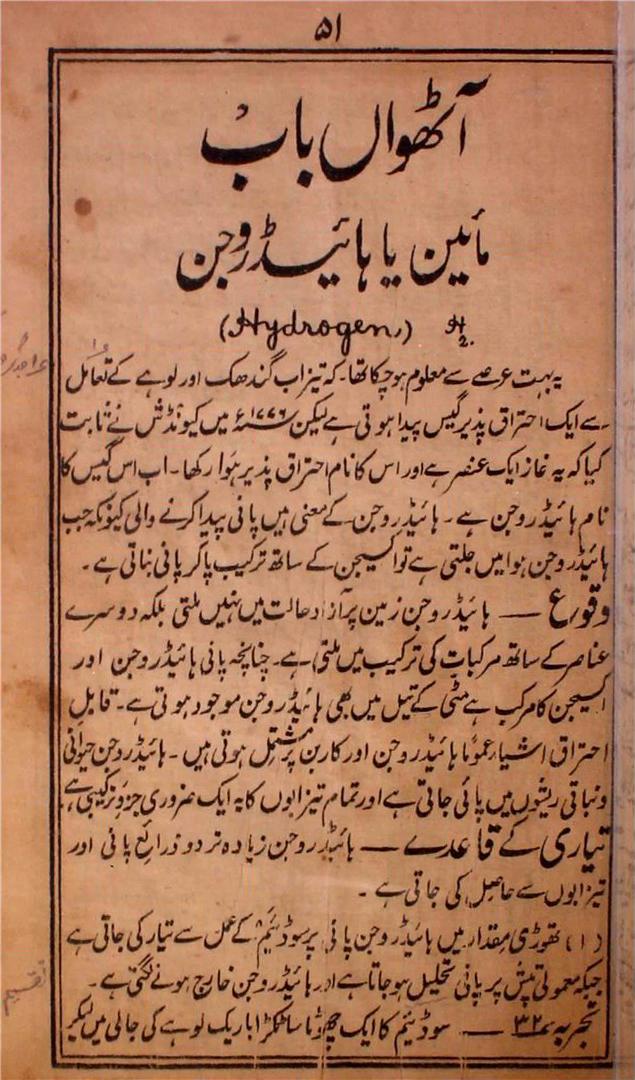 ۵۱
آٹھواں باب
مائین یا ہائیڈروجن
(Hydrogen,) H2.
یہ بہت عرصے سے معلوم ہوچکا تھا۔ کہ تیزاب گندھک اور لوہے کے تعامل
سے ایک احتراق پذیر گیس پیدا ہوتی ہے لیکن ۱۷۷۶ء میں کیونڈش نے ثابت
کیا کہ یہ غاز ایک عنصر ہے اور اس کا نام احتراق پذیر ہوا رکھا۔ اب اس گیس کا
نام ہائیڈروجن ہے۔ ہائیڈروجن کے معنی ہیں پانی پیدا کرنے والی کیونکہ جب
ہائیڈروجن ہوا میں جلتی ہے تو آکسیجن کے ساتھ ترکیب پاکر پانی بناتی ہے۔
وقوع — ہائیڈروجن زمین پر آزاد حالت میں نہیں ملتی بلکہ دوسرے
عناصر کے ساتھ مرکبات کی ترکیب میں ملتی ہے۔ چنانچہ پانی ہائیڈروجن اور
آکسیجن کا مرکب ہے مٹی کے تیل میں بھی ہائیڈروجن موجود ہوتی ہے۔ قابل
احتراق اشیاء عموماً ہائیڈروجن اور کاربن پر مشتمل ہوتی ہیں۔ ہائیڈروجن حیوانی
و نباتی ریشوں میں پائی جاتی ہے اور تمام تیزابوں کا یہ ایک ضروری جزو ترکیبی ہے
تیاری کے قاعدے — ہائیڈروجن زیادہ تر دو ذرائع پانی اور
تیزابوں سے حاصل کی جاتی ہے۔
(۱) تھوڑی مقدار میں ہائیڈروجن پانی پر سوڈیئم کے عمل سے تیار کی جاتی ہے
جبکہ معمولی تپش پر پانی تحلیل ہوجاتا ہے اور ہائیڈروجن خارج ہونے لگتی ہے۔
تجربہ ۳۲ — سوڈیئم کا ایک چھوٹا سا ٹکڑا باریک لوہے کی جالی میں لیکر
تقسیم